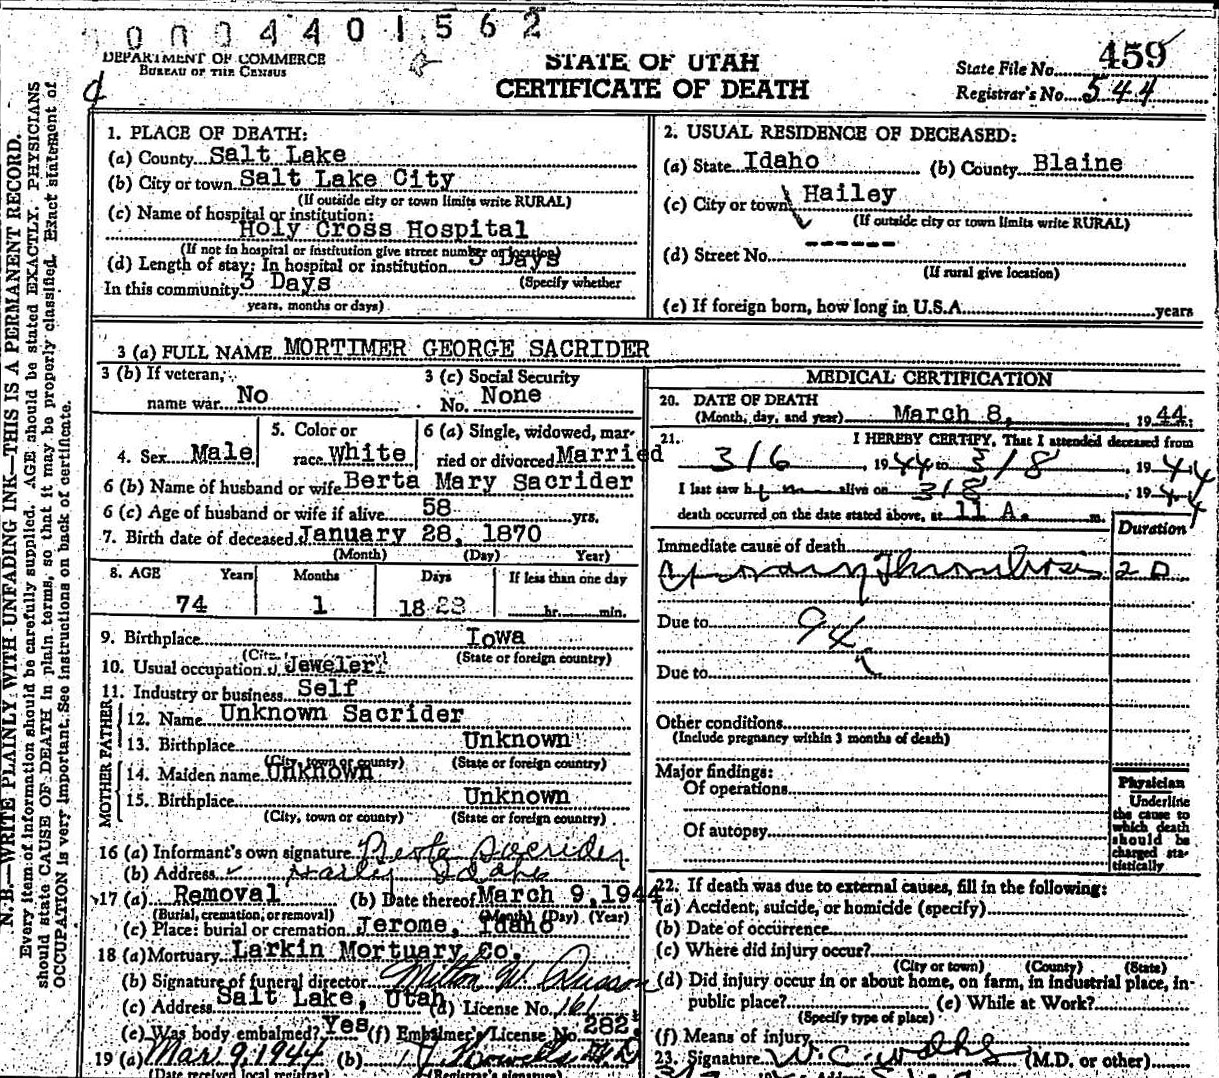 0004401562
DEPARTMENT OF COMMERCE
BUREAU OF THE CENSUS
STATE OF UTAH
CERTIFICATE OF DEATH
State File No. 459
Registrar's No. 544
N. B.—WRITE PLAINLY WITH UNFADING INK—THIS IS A PERMANENT RECORD.
Every item of information should be carefully supplied. AGE should be stated EXACTLY. PHYSICIANS
should state CAUSE OF DEATH in plain terms, so that it may be properly classified. Exact statement of
OCCUPATION is very important. See instructions on back of certificate.
1. PLACE OF DEATH:
(a) County Salt Lake
(b) City or town Salt Lake City
(If outside city or town limits write RURAL)
(c) Name of hospital or institution:
Holy Cross Hospital
(If not in hospital or institution give street number or location)
(d) Length of stay: In hospital or institution 3 Days
(Specify whether
In this community 3 Days
years, months or days)
2. USUAL RESIDENCE OF DECEASED:
(a) State Idaho (b) County Blaine
(c) City or town Hailey
(If outside city or town limits write RURAL)
(d) Street No. ------
(If rural give location)
(e) If foreign born, how long in U.S.A. years
3 (a) FULL NAME MORTIMER GEORGE SACRIDER
3 (b) If veteran, name war No
3 (c) Social Security No. None
4. Sex Male
5. Color or race White
6 (a) Single, widowed, married or divorced Married
6 (b) Name of husband or wife Berta Mary Sacrider
6 (c) Age of husband or wife if alive 58 yrs.
7. Birth date of deceased January 28, 1870
(Month) (Day) Year)
8. AGE Years Months Days If less than one day
74 1 18 hr. min.
9. Birthplace Iowa
(State or foreign country)
10. Usual occupation Jeweler
11. Industry or business Self
FATHER
12. Name Unknown Sacrider
13. Birthplace Unknown
(City, town or county) (State or foreign country)
MOTHER
14. Maiden name Unknown
15. Birthplace Unknown
(City, town or county) (State or foreign country)
16 (a) Informant's own signature Berta Sacrider
(b) Address Hailey Idaho
17 (a) Removal (b) Date thereof March 9, 1944
(Burial, cremation, or removal) (Month) (Day) (Year)
(c) Place: burial or cremation Jerome, Idaho
18 (a) Mortuary Larkin Mortuary Co.
(b) Signature of funeral director Milton W.
(c) Address Salt Lake, Utah (d) License No. 161
(e) Was body embalmed? Yes (f) Embalmer's License No. 282
19 (a) Mar 9, 1944 (b)
(Date received local registrar) (Registrar's signature)
MEDICAL CERTIFICATION
20. DATE OF DEATH
(Month, day, and year) March 8, 1944
21. I HEREBY CERTIFY, That I attended deceased from
3/6, 1944 to 3/8, 1944
I last saw him alive on 3/8, 1944
death occurred on the date stated above, at 11 A. m.
Duration
Immediate cause of death
Coronary Thrombosis 2 D
Due to 94
Due to
Other conditions
(Include pregnancy within 3 months of death)
Major findings:
Of operations
Of autopsy
Physician
Underline
the cause to
which death
should be
charged sta-
tistically
22. If death was due to external causes, fill in the following:
(a) Accident, suicide, or homicide (specify)
(b) Date of occurrence
(c) Where did injury occur?
(City or town) (County) (State)
(d) Did injury occur in or about home, on farm, in industrial place, in-
public place? (e) While at Work?
(Specify type of place)
(f) Means of injury
23. Signature (M.D. or other)